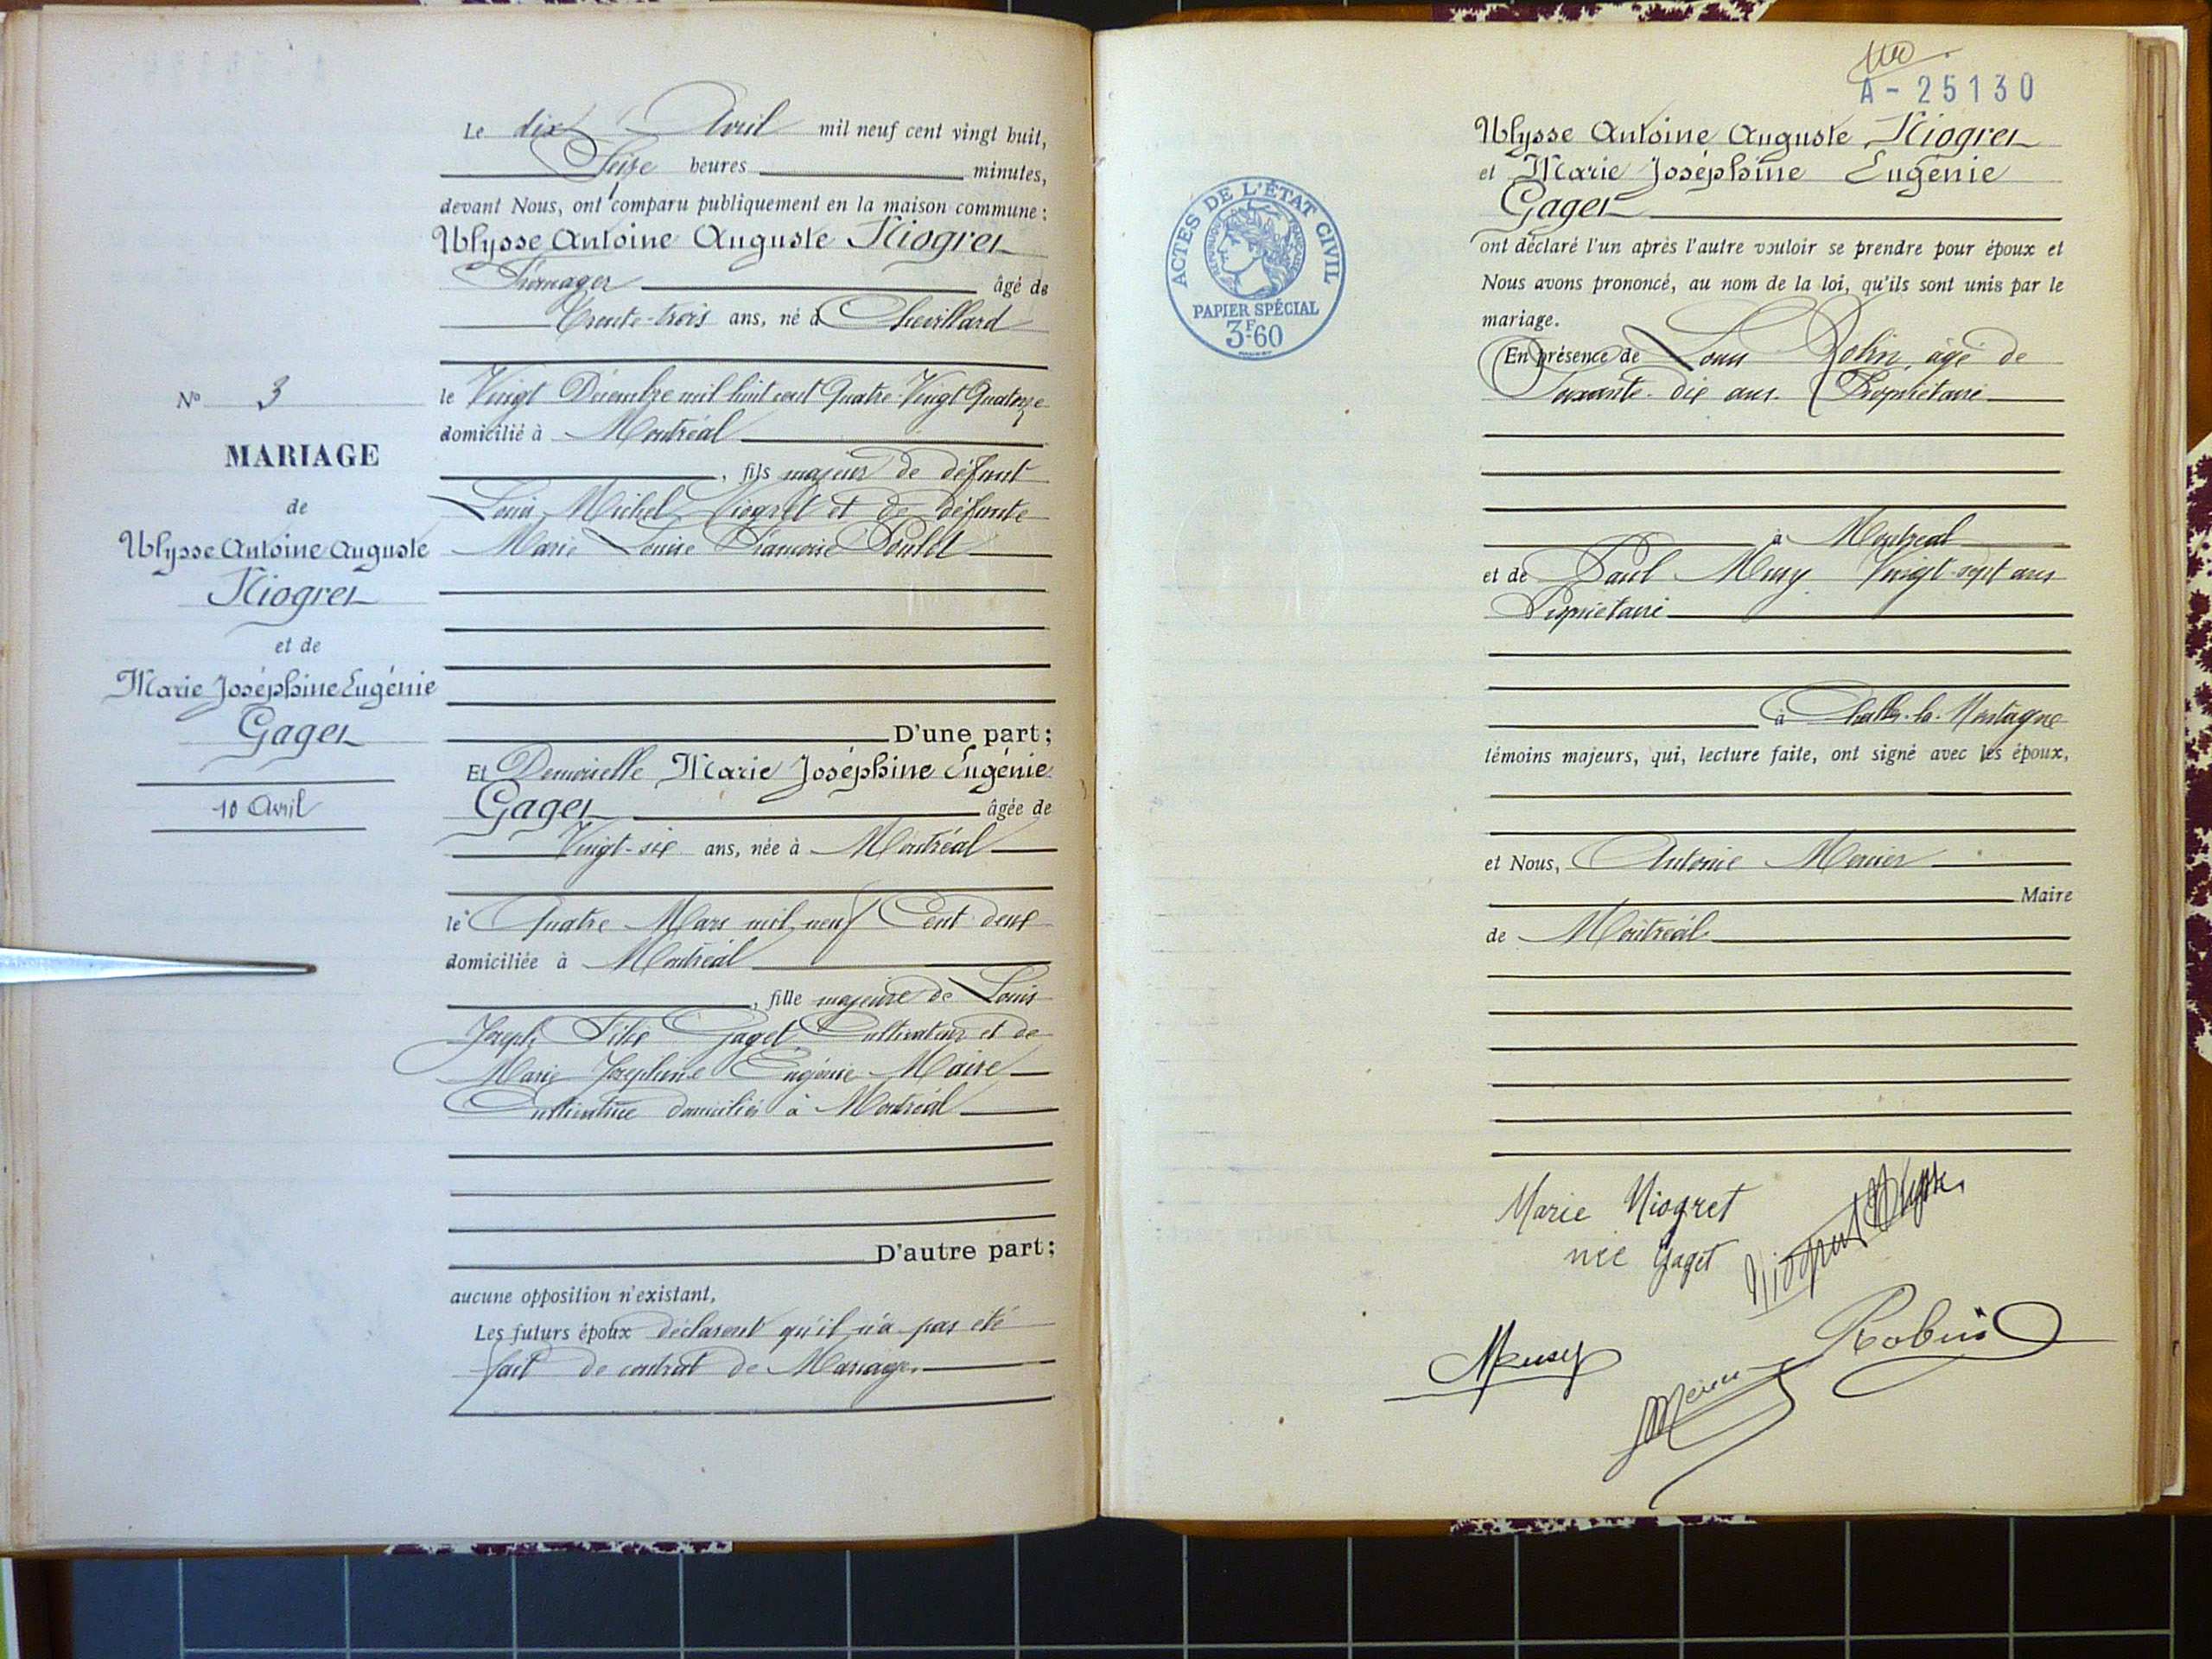 Le dix Avril mil neuf cent vingt huit,
Seize heures minutes,
devant Nous, ont comparu publiquement en la maison commune :
Ulysse Antoine Auguste Niogret
Fromager âgé de
Trente-trois ans, né à Chevillard
le Vingt Décembre mil huit cent Quatre-Vingt Quatorze
domicilié à Montréal
, fils majeur de défunt
Louis Michel Niogret et de défunte
Marie Louise Françoise Poulet
D'une part ;
Et Demoiselle Marie Joséphine Eugénie
Gaget âgée de
Vingt-six ans, née à Montréal
le Quatre Mars mil neuf Cent deux
domiciliée à Montréal
, fille majeure de Louis
Joseph Félix Gaget Cultivateur et de
Marie Josephine Eugénie Maire
Cultivatrice domiciliés à Montréal
D'autre part ;
aucune opposition n'existant,
Les futurs époux déclarent qu'il n'a pas été
fait de contrat de Mariage.
Nº 3
MARIAGE
de
Ulysse Antoine Auguste
Niogret
et de
Marie Joséphine Eugénie
Gaget
10 Avril
A - 25130
Ulysse Antoine Auguste Niogret
et Marie Joséphine Eugénie
Gaget
ont déclaré l'un après l'autre vouloir se prendre pour époux et
Nous avons prononcé, au nom de la loi, qu'ils sont unis par le
mariage.
En présence de Louis Robin, âgé de
Soixante-dix ans. Propriétaire
à Montréal
et de Paul Musy Vingt-sept ans
Propriétaire
à Chatillon-la-Montagne
témoins majeurs, qui, lecture faite, ont signé avec les époux,
et Nous, Antoine Mercier
Maire
de Montréal.
ACTES DE L'ÉTAT CIVIL
RÉPUBLIQUE FRANÇAISE
PAPIER SPÉCIAL
3F.60
Marie Niogret
née Gaget
Niogret Ulysse
Musy
Robin
Mercier